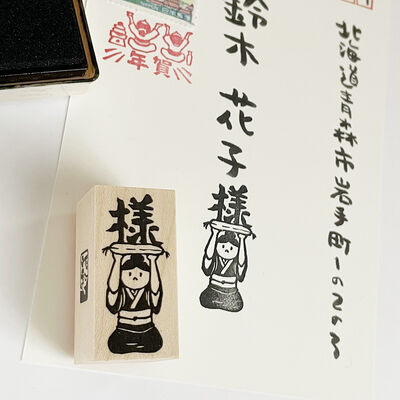 北海道青森市岩手町1の2の3
鈴木 花子 様
年賀
様